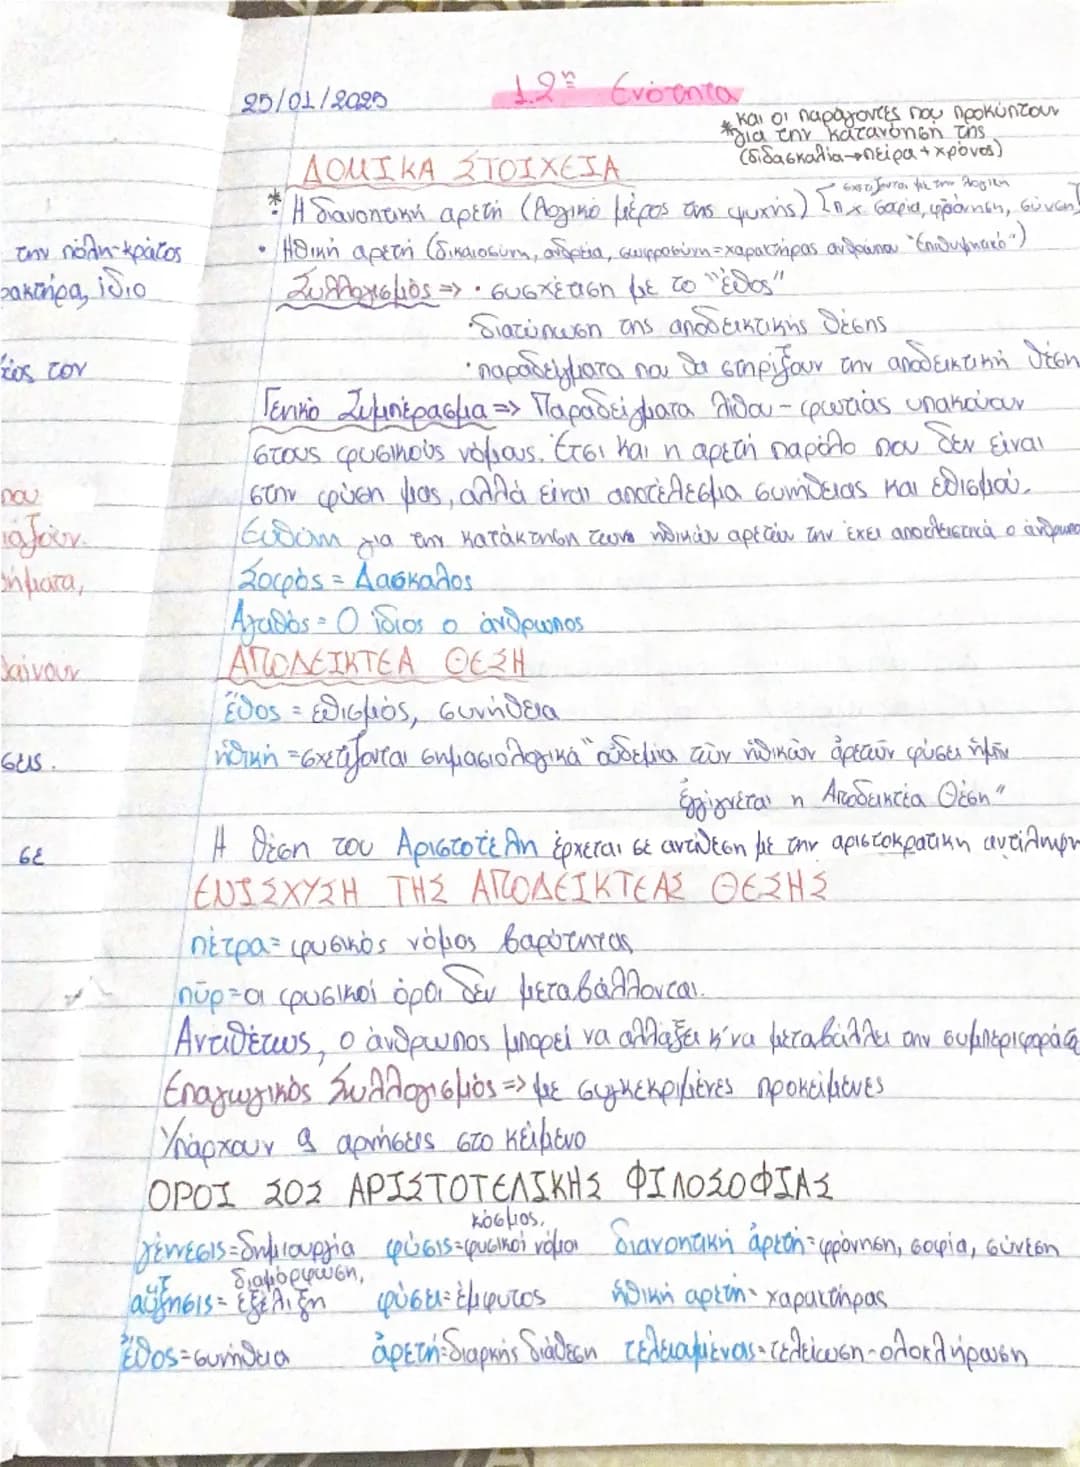 25/01/2025
12η Ενότητα
*και οι παράγοντες που προκύπτουν
για την κατανόησή της
(διδασκαλία→πείρα + χρόνος)
ΔΟΜΙΚΑ ΣΤΟΙΧΕΙΑ
* Η διανοητική αρετή (λογικό μέρος της ψυχής) [π.χ σοφία, φρόνηση, σύνεση]
σχετίζονται με την λογική
• Ηθική αρετή (δικαιοσύνη, ανδρεία, σωφροσύνη=χαρακτήρας ανθρώπου "Επιθυμητικό")
Συλλογισμός => • συσχέτιση με το "έθος"
•διατύπωση της αποδεικτικής θέσης
•παραδείγματα που θα στηρίξουν την αποδεικτική θέση
Γενικό Συμπέρασμα => Παραδείγματα λίθου - φωτιάς υπακούουν
στους φυσικούς νόμους. Έτσι και η αρετή παρόλο που δεν είναι
στην φύση μας, αλλά είναι αποτέλεσμα συνήθειας και εθισμού.
Ευθύνη για την κατάκτηση των ηθικών αρετών την έχει αποκλειστικά ο άνθρωπο
Σοφός = Δάσκαλος
Αγαθός = Ο ίδιος ο άνθρωπος
ΑΠΟΔΕΙΚΤΕΑ ΘΕΣΗ
ἔθος = εθισμός, συνήθεια
ἠθική =σχετίζονται σημασιολογικά "οὐδεμία τῶν ἠθικῶν ἀρετῶν φύσει ἡμῖν
ἐγγίγνεται η Αποδεικτέα Θέση"
Η θέση του Αριστοτέλη έρχεται σε αντίθεση με την αριστοκρατική αντίληψη
ΕΝΙΣΧΥΣΗ ΤΗΣ ΑΠΟΔΕΙΚΤΕΑΣ ΘΕΣΗΣ
πέτρα= φυσικός νόμος βαρύτητας
πῦρ=οι φυσικοί όροι δεν μεταβάλλονται.
Αντιθέτως, ο άνθρωπος μπορεί να αλλάξει κ' να μεταβάλλει την συμπεριφορά
Επαγωγικός Συλλογισμός => με συγκεκριμένες προκείμενες
Υπάρχουν 9 αρνήσεις στο κείμενο
ΟΡΟΙ SOS ΑΡΙΣΤΟΤΕΛΙΚΗΣ ΦΙΛΟΣΟΦΙΑΣ
γέννεσις=δημιουργία φύσις=φυσικοί νόμοι διανοητική ἀρετή=φρόνηση, σοφία, σύνεση
κόσμος,
διαμόρφωση,
αὔξησις= εξέλιξη φύσει=έμφυτος ἠθική αρετή= χαρακτήρας
ἔθος=συνήθεια ἀρετή=διαρκής διάθεση τελειωμένοις=τελείωση-ολοκλήρωση
την πόλη-κράτος
ρακτήρα, ίδιο
τον
που
ήματα,
βαίνουν
σεις.
σε